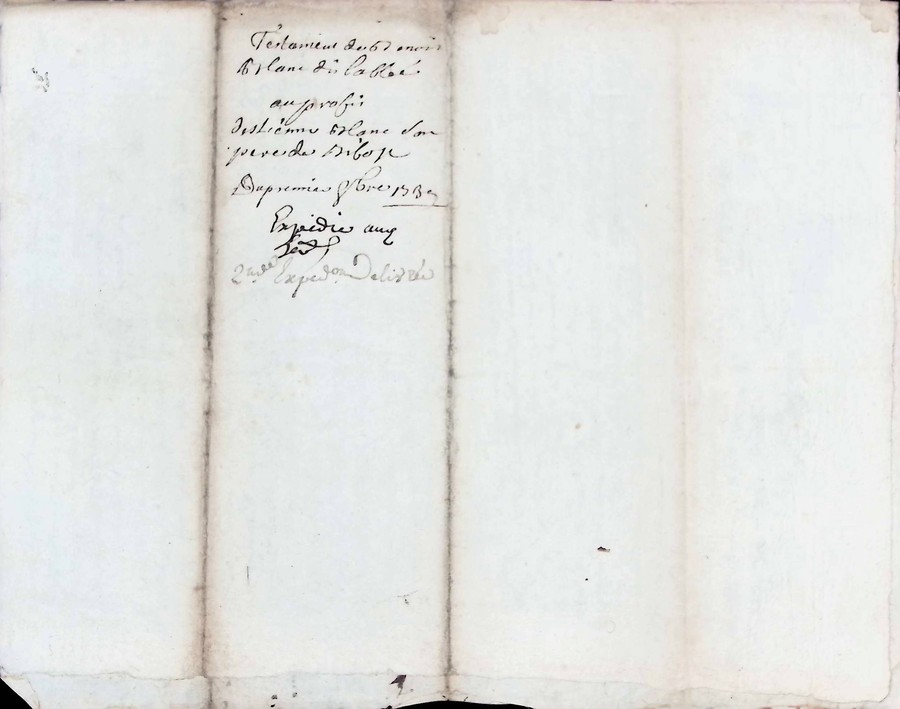 Testament de Benoit
Blanc dit labbé
au profit
destienne Blanc son
pere de Ribost
Du premier 9bre 173
Expédié aux
2nde Expedon Delivrée